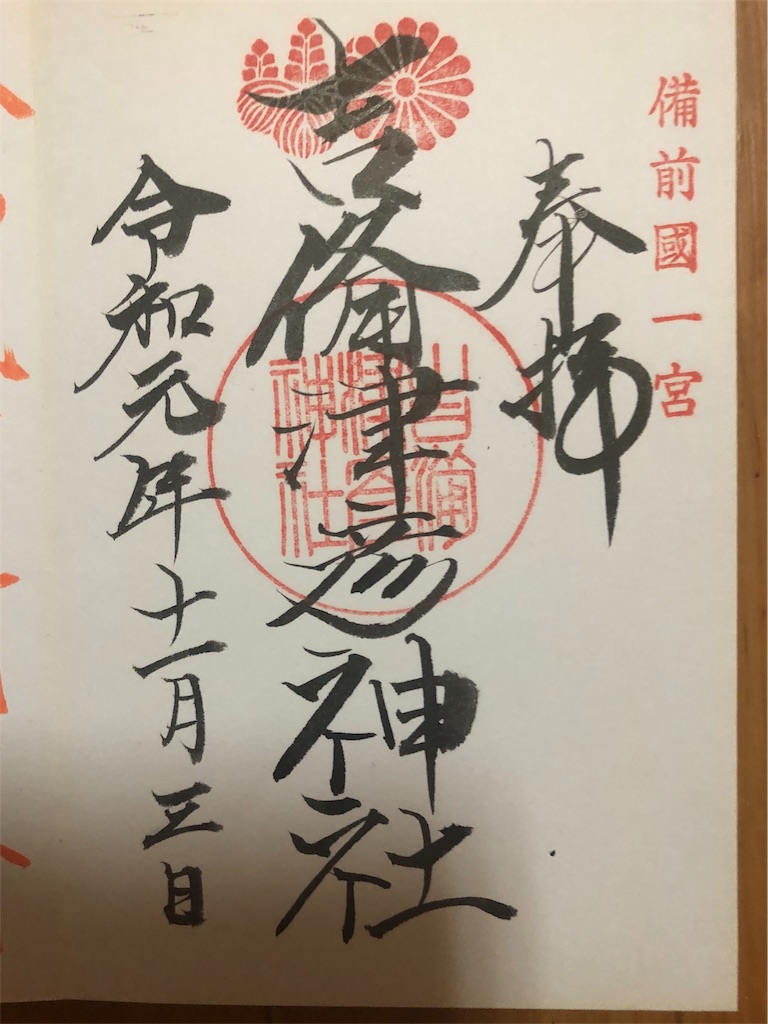 備前國一宮
奉拝
吉備津彦神社
吉備
津彦
神社
令和元年十一月三日